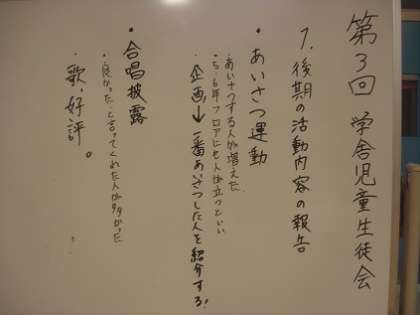 第3回 学舎児童生徒会
1. 後期の活動内容の報告
・あいさつ運動
・あいさつする人が増えた
・5.6年フロアにも人が立つといい
・企画↓一番あいさつした人を紹介する!
・合唱披露
・良かったと言ってくれた人が多かった
・歌、好評。